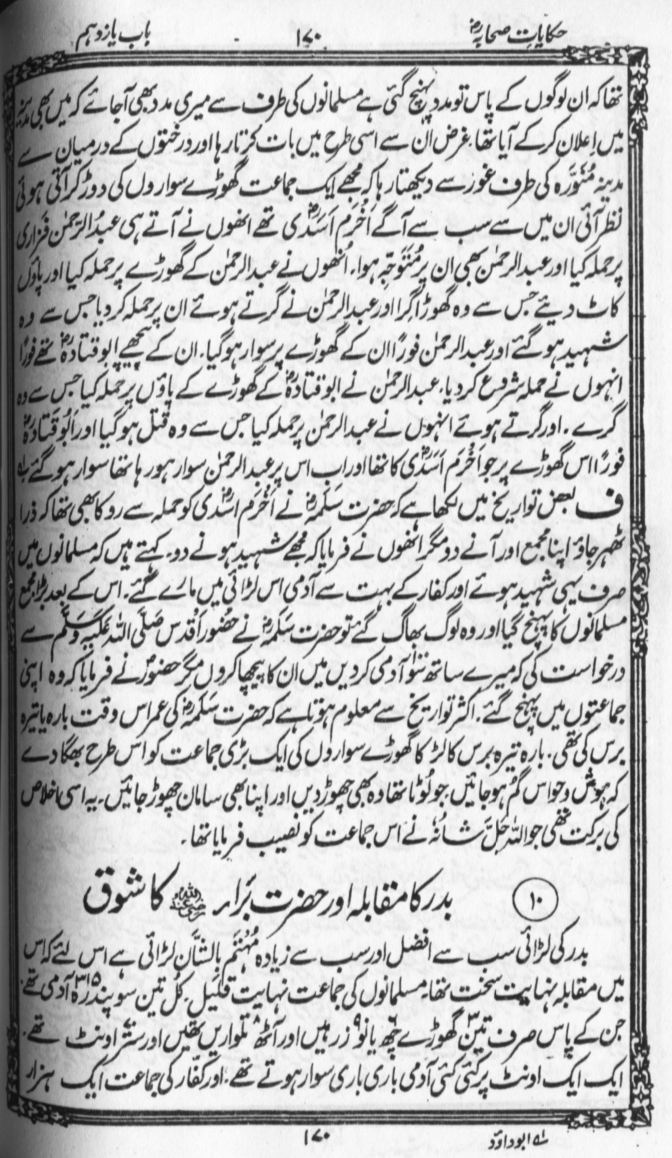 حکایاتِ صحابہؓ ۱۷۰ باب یازدہم
تھا کہ ان لوگوں کے پاس تو مدد پہنچ گئی ہے مسلمانوں کی طرف سے میری مدد بھی آجائے کہ میں بھی مدینہ
میں اعلان کرکے آیا تھا۔ غرض ان سے اسی طرح میں بات کرتا رہا اور درختوں کے درمیان سے
مدینہ مُنَوَّرہ کی طرف غور سے دیکھتا رہا کہ مجھے ایک جماعت گھوڑے سواروں کی دوڑ کر آتی ہوئی
نظر آئی ان میں سے سب سے آگے اَخْرَم اَسَدیؓ تھے انھوں نے آتے ہی عبدُالرحمٰن فَزاری
پر حملہ کیا اور عبدالرحمٰن بھی ان پر مُتَوَجِّہ ہوا۔ اُنھوں نے عبدالرحمٰن کے گھوڑے پر حملہ کیا اور پاؤں
کاٹ دیئے جس سے وہ گھوڑا گرا اور عبدالرحمٰن نے گرتے ہوئے ان پر حملہ کردیا جس سے وہ
شہید ہوگئے اور عبدالرحمٰن فوراً ان کے گھوڑے پر سوار ہوگیا۔ ان کے پیچھے ابوقتادہؓ تھے فوراً
انہوں نے حملہ شروع کردیا۔ عبدالرحمٰن نے ابوقتادہؓ کے گھوڑے کے پاؤں پر حملہ کیا جس سے وہ
گرے۔ اور گرتے ہوئے انہوں نے عبدالرحمٰن پر حملہ کیا جس سے وہ قتل ہوگیا اور اَبُوقَتادہؓ
فوراً اس گھوڑے پر جو اَخْرَم اَسَدیؓ کا تھا اور اب اس پر عبدالرحمٰن سوار ہو رہا تھا سوار ہوگئے لہ
ف بعض تواریخ میں لکھا ہے کہ حضرت سَلَمہؓ نے اَخْرَم اَسَدیؓ کو حملہ سے روکا بھی تھا کہ ذرا
ٹھہر جاؤ اپنا مجمع اور آنے دو مگر انھوں نے فرمایا کہ مجھے شہید ہونے دو۔ کہتے ہیں کہ مسلمانوں میں
صرف یہی شہید ہوئے اور کفار کے بہت سے آدمی اس لڑائی میں مارے گئے۔ اس کے بعد بڑا مجمع
مسلمانوں کا پہنچ گیا اور وہ لوگ بھاگ گئے تو حضرت سَلَمہؓ نے حضورِ اقدس صَلَّی اللّٰہُ عَلَیْہِ وَسَلَّم سے
درخواست کی کہ میرے ساتھ سَوْ آدمی کردیں میں ان کا پیچھا کروں مگر حضورؐ نے فرمایا کہ وہ اپنی
جماعتوں میں پہنچ گئے۔ اکثر تواریخ سے معلوم ہوتا ہے کہ حضرت سَلَمہؓ کی عمر اس وقت بارہ یا تیرہ
برس کی تھی۔ بارہ تیرہ برس کا لڑکا گھوڑے سواروں کی ایک بڑی جماعت کو اس طرح بھگا دے
کہ ہوش و حواس گم ہوجائیں۔ جو لُوٹا تھا وہ بھی چھوڑ دیں اور اپنا بھی سامان چھوڑ جائیں۔ یہ اسی اخلاص
کی برکت تھی جو اللّٰہ جَلَّ شَانُہٗ نے اس جماعت کو نصیب فرمایا تھا۔
۱۰ بدر کا مقابلہ اور حضرت بَراء رضی اللہ عنہ کا شوق
بدر کی لڑائی سب سے افضل اور سب سے زیادہ مُہْتَم بالشَّان لڑائی ہے اس لئے کہ اس
میں مقابلہ نہایت سخت تھا۔ مسلمانوں کی جماعت نہایت قلیل۔ کُل تین سو پندرہ ۳۱۵ آدمی تھے
جن کے پاس صرف تین ۳ گھوڑے چھ یا نو ۹ زرہیں اور آٹھ ۸ تلواریں تھیں اور ستر ۷۰ اونٹ تھے۔
ایک ایک اونٹ پر کئی کئی آدمی باری باری سوار ہوتے تھے۔ اور کفّار کی جماعت ایک ہزار
۱۷۰ لہ ابوداؤد